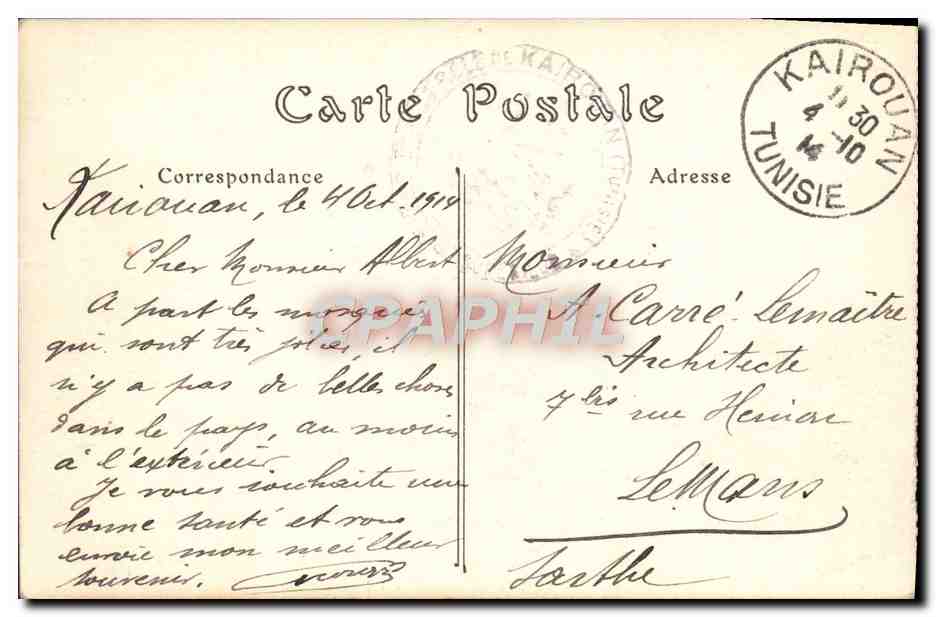 Carte Postale
KAIROUAN
11 30
4 -10
14
TUNISIE
Correspondance
Kairouan, le 4 Oct. 1914
Cher Monsieur Albert
A part les mosquées
qui sont très jolies, il
n'y a pas de belles choses
dans le pays, au moins
à l'extérieur.
Je vous souhaite une
bonne santé et vous
envoie mon meilleur
souvenir.
Adresse
Monsieur
A. Carré-Lemaître
Architecte
7 bis rue
Le Mans
Sarthe
CPAPHIL